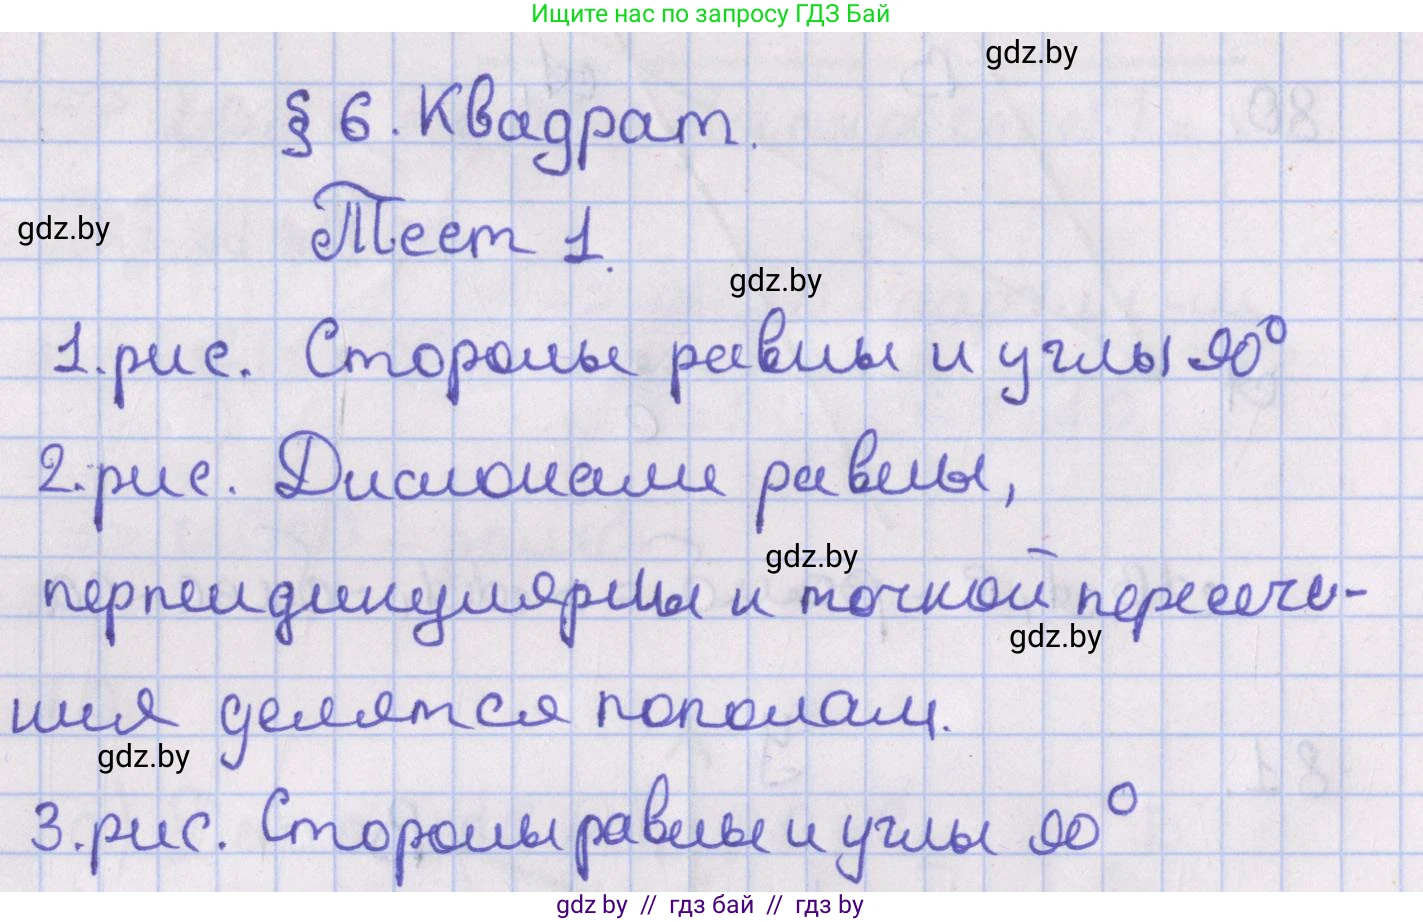 Ищите нас по запросу ГДЗ Бай
gdz.by
§ 6. Квадрат.
gdz.by
Тест 1.
gdz.by
1. рис. Стороны равны и углы 90°
2. рис. Диагонали равны,
gdz.by
перпендикулярны и точкой пересече-
gdz.by
ния делятся пополам.
gdz.by
3. рис. Стороны равны и углы 90°
gdz.by // гдз бай // гдз by